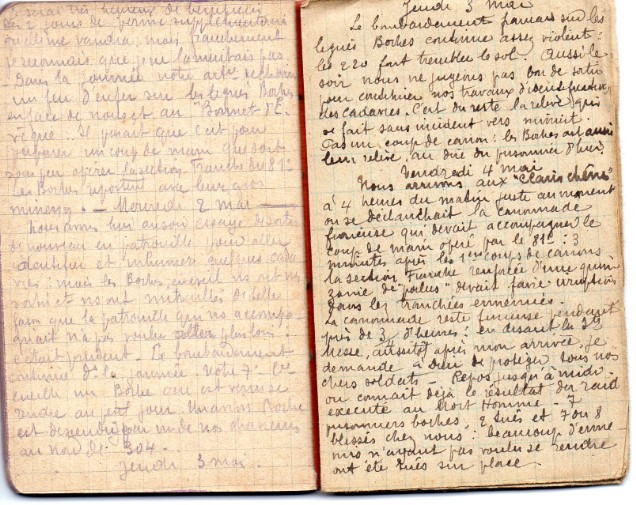 2 jours de permis supplémentaires
voudra; mais franchement
je reconnais que je ne la méritais pas.
Dans la journée notre artie
un feu d'enfer sur les lignes Boches
en face de nous et au "Bonnet d'E-
vêque". Il paraît que c'est pour
préparer un coup de main que doit
opérer la section Franche du 81e
Les Boches ripostent avec leurs
minen. — Mercredi 2 mai —
Nous avons hier au soir essayé de sortir
de nouveau en patrouille pour aller
identifier et inhumer quelques cada-
vres: mais les Boches
et ns ont mitraillés de telle
façon que la patrouille qui ns accompa-
gnait n'a pas voulu aller plus loin:
c'était prudent. Le bombardement
continue ds la journée. Notre 7e Cie
cueille un Boche qui est venu se
rendre au petit jour. Un avion Boche
est descendu par un de nos chasseurs
au nord de 304.
Jeudi 3 mai.
Jeudi 3 mai
Le bombardement français sur les
lignes Boches continue assez violent:
les 220 font trembler le sol. Aussi le
soir nous ne jugeons pas bon de sortir
pour continuer nos travaux d'identification
des cadavres. C'est du reste la relève qui
se fait sans incident vers minuit.
Pas un coup de canon: les Boches ont aussi
leur relève, au dire du prisonnier d'hier
Vendredi 4 mai
Nous arrivons aux "Clairs chênes"
à 4 heures du matin juste au moment
où se déclanchait la canonnade
furieuse qui devait accompagner le
coup de main opéré par le 81e: 3
minutes après les 1ers coups de canons
la section Franche renforcée d'une quin-
zaine de "poilus" devait faire irruption
dans les tranchées ennemies.
La canonnade reste furieuse pendant
près de 3/4 d'heures: en disant la Ste
Messe, aussitôt après mon arrivée, je
demande à Dieu de protéger tous nos
chers soldats — Repos jusqu'à midi.
on connait déjà le résultat du raid
exécuté au Mort Homme — 7
prisonniers boches, 2 tués et 7 ou 8
blessés chez nous: beaucoup d'enne-
mis n'ayant pas voulu se rendre
ont été tués sur place.